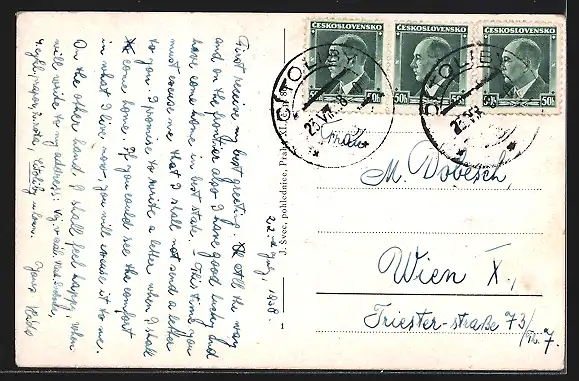 First receive my best greeting. All the way
and on the frontier also I have good lucky and
have come home in best state. - This time you
must excuse me that I shall not send a letter
to you. I promise to write a letter when I shall
come home. If you could see the comfort
in what I live now, you will excuse it to me.
On the other hand I shall feel happy, when
will write to my address:
Yours
22. July, 1938.
J. Švec, pohlednice, Praha XI.
1
ČESKOSLOVENSKO
50h 50h
ČESKOSLOVENSKO
50h 50h
ČESKOSLOVENSKO
50h 50h
CÍTOLIBY
CÍTOLIBY
Frau
M. Dobesch,
Wien X.,
Triester-straße 73/
7.